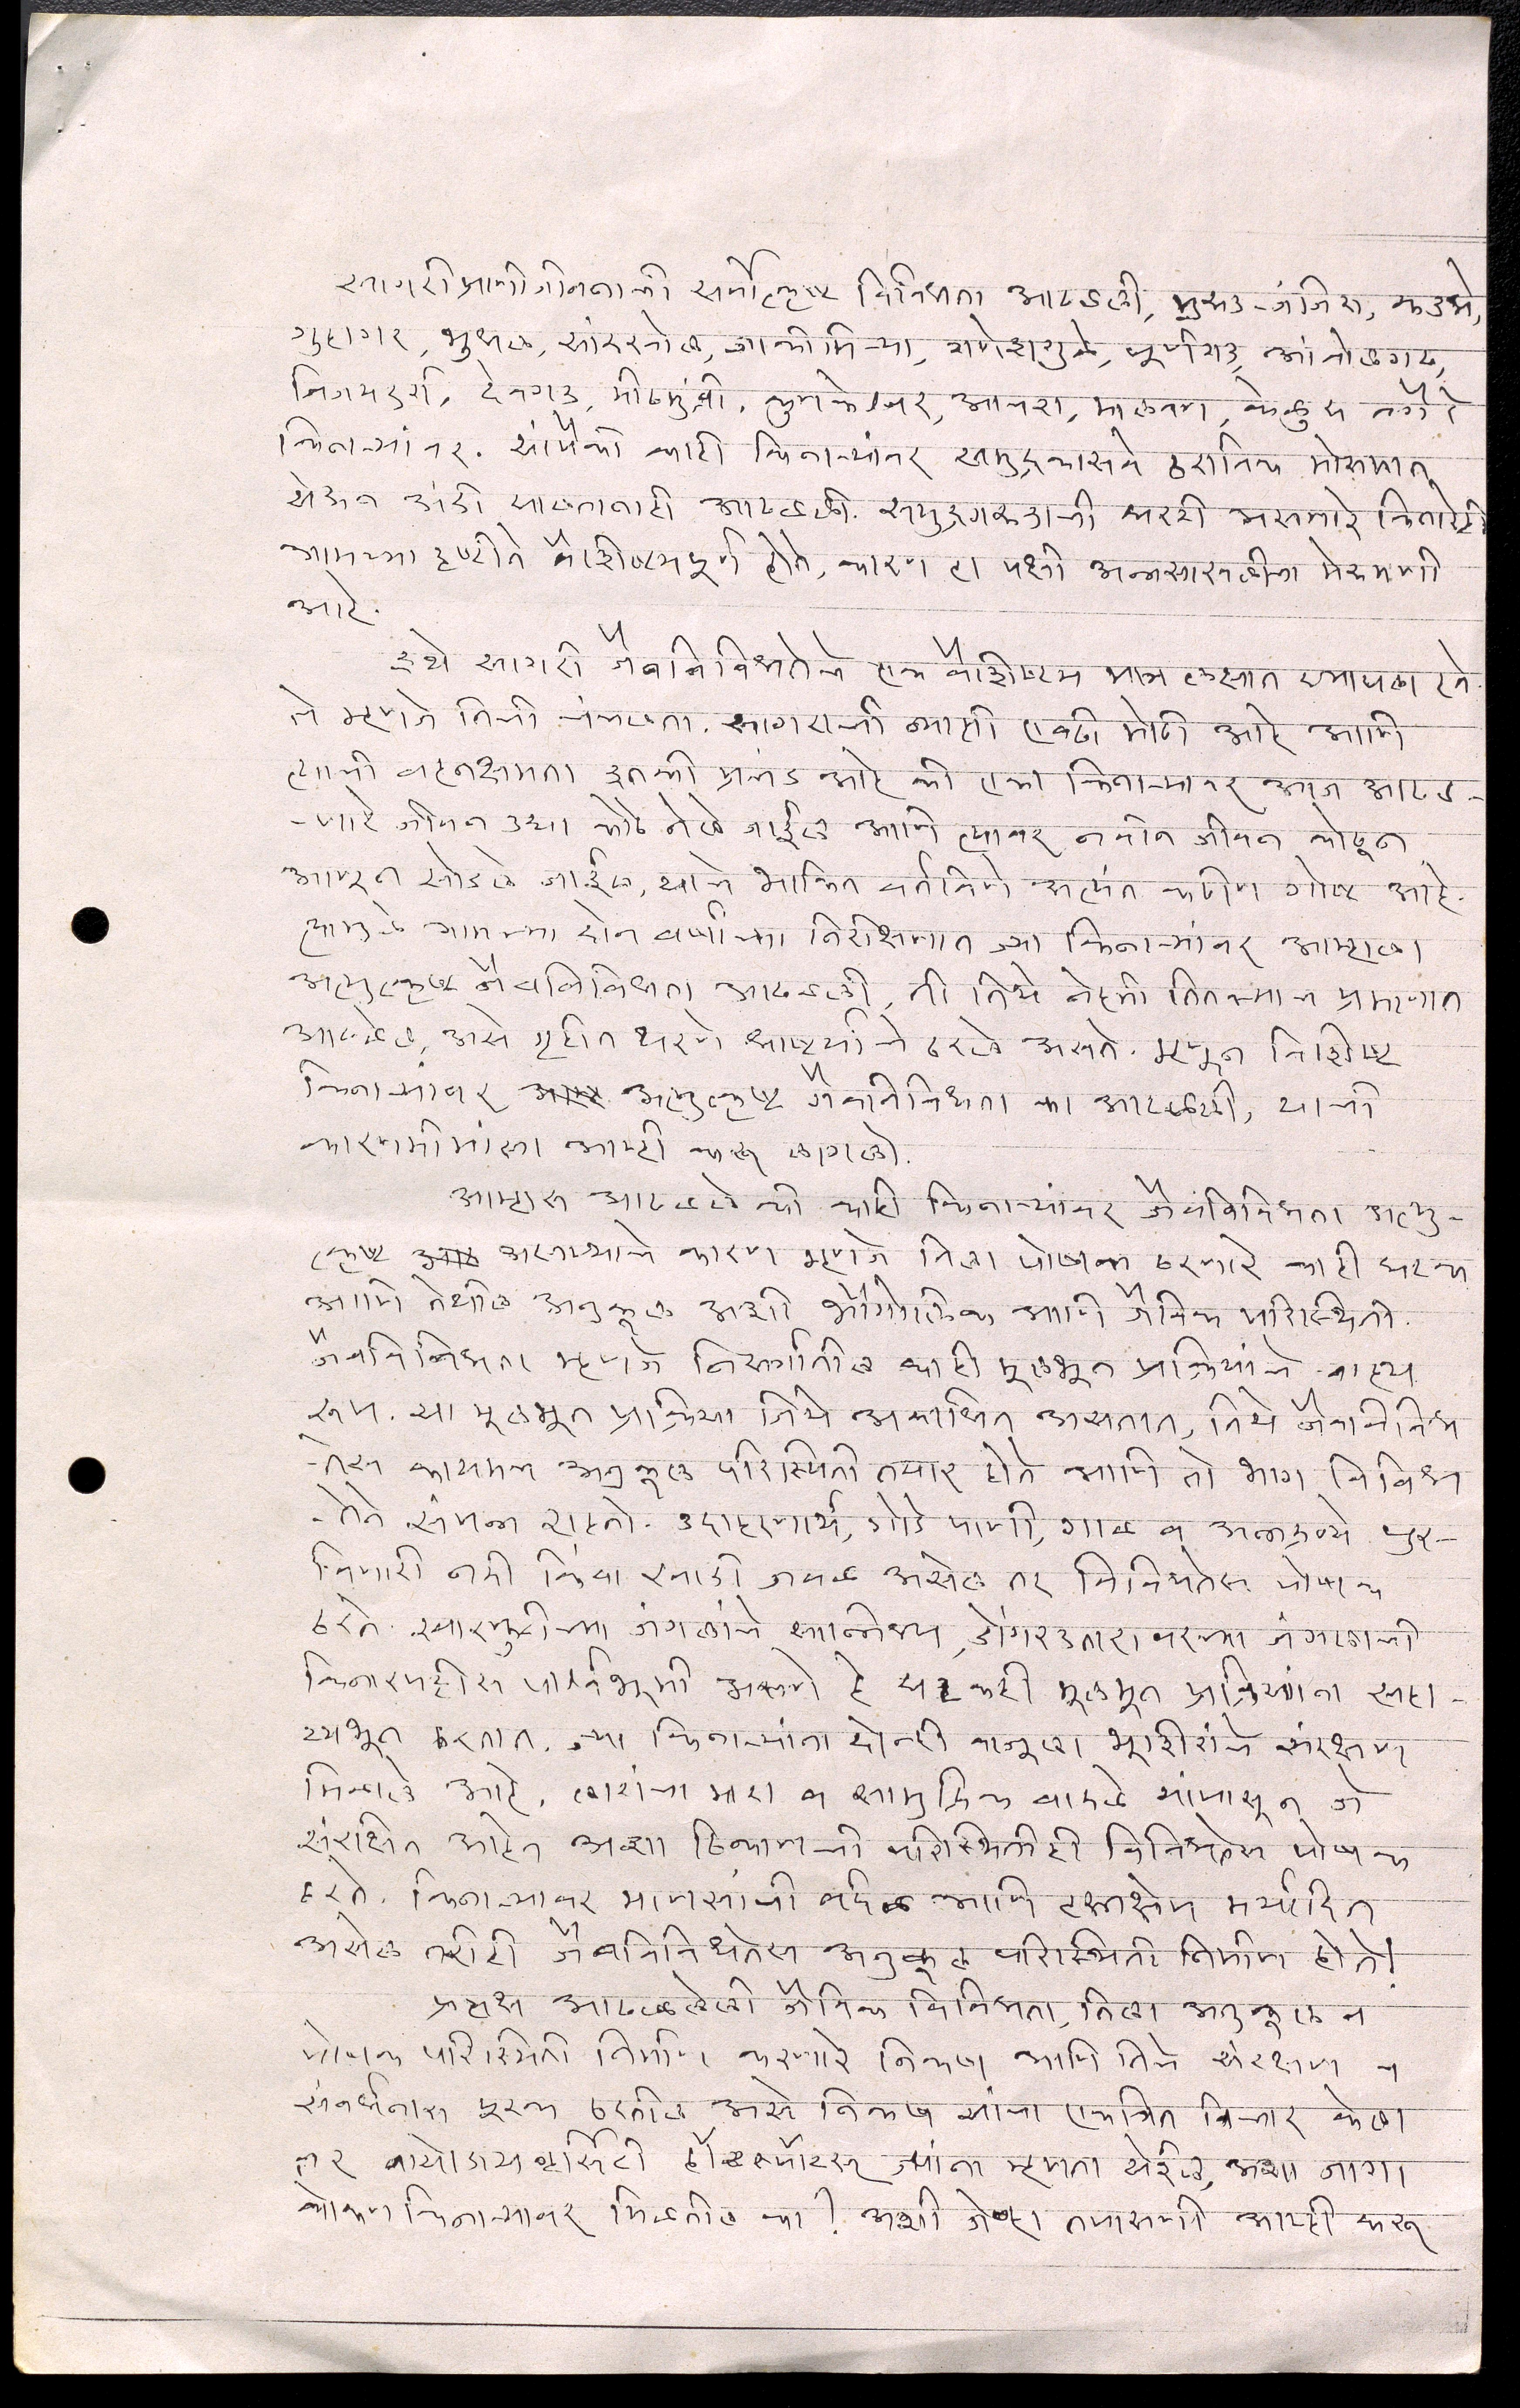 सागरी प्राणीजीवनाची सर्वोत्कृष्ट विविधता आढळली, मुरूड-जंजिरा, कडमे,
गुहागर, भुधळ, सांडखोल, काळीमिऱ्या, गणेशगुळे, पूर्णगड, आंबोळगढ,
विजयदुर्ग, देवगड, मीठमुंब्री, कुणकेश्वर, आचरा, मालवण, केळुस वगैरे
किनाऱ्यांवर. यांपैकी काही किनाऱ्यांवर समुद्रकासवे ठराविक मोसमात
येऊन अंडी घालतानाही आढळली. समुद्रगरूडाची घरटी असणारे किनारेही
आमच्या दृष्टीने वैशिष्ट्यपूर्ण होते, कारण हा पक्षी अन्नसाखळीचा मेरुमणी
आहे.
इथे सागरी जैवविविधतेचे एक वैशिष्ट्य मात्र लक्षात घ्यायला हवे.
ते म्हणजे तिची चंचलता. सागराची व्याप्ती एवढी मोठी आहे आणि
त्याची वहनक्षमता इतकी प्रचंड आहे की एका किनाऱ्यावर आज आढळ-
-णारे जीवन उद्या कोठे नेले जाईल आणि त्यावर नवीन जीवन कोठून
आणून सोडले जाईल, याचे भाकित वर्तविणे अत्यंत कठीण गोष्ट आहे.
त्यामुळे आमच्या दोन वर्षांच्या निरीक्षणात ज्या किनाऱ्यांवर आम्हाला
अत्युत्कृष्ट जैवविविधता आढळली, ती तिथे नेहमी तितक्याच प्रमाणात
आढळेल, असे गृहीत धरणे धार्ष्ट्याचे ठरले असते. म्हणून विशिष्ट
किनाऱ्यांवर अत्युत्कृष्ट जैवविविधता का आढळली, याची
कारणमीमांसा आम्ही करू लागलो.
आम्हास आढळले की काही किनाऱ्यांवर जैवविविधता अत्यु-
त्कृष्ट असण्याचे कारण म्हणजे तिला पोषक ठरणारे काही घटक
आणि तेथील अनुकूल अशी भौगोलिक आणि जैविक परिस्थिती.
जैवविविधता म्हणजे निसर्गातील काही मूलभूत प्रक्रियांचे बाह्य
रूप. या मूलभूत प्रक्रिया जिथे अबाधित असतात, तिथे जैवविविध
-तेस कायमच अनुकूल परिस्थिती तयार होते आणि तो भाग विविध
-तेने संपन्न राहतो. उदाहरणार्थ, गोडे पाणी, गाळ व अन्नद्रव्ये पुर-
विणारी नदी किंवा खाडी जवळ असेल तर विविधतेस पोषक
ठरते. खारफुटीच्या जंगलांचे सान्निध्य, डोंगरउतारावरच्या जंगलाची
किनारपट्टीस पार्श्वभूमी असणे हे घटकही मूलभूत प्रक्रियांना सहा-
य्यभूत ठरतात. ज्या किनाऱ्यांना दोन्ही बाजूला भूशीरांचे संरक्षण
मिळाले आहे, लाटांचा मारा व सामुद्रिक वादळे यांपासून जे
संरक्षित आहेत अशा ठिकाणची परिस्थितीही विविधतेस पोषक
ठरते. किनाऱ्यावर माणसांची वर्दळ आणि हस्तक्षेप मर्यादित
असेल तरीही जैवविविधतेस अनुकूल परिस्थिती निर्माण होते!
प्रत्यक्ष आढळलेली जैविक विविधता, तिला अनुकूल व
पोषक परिस्थिती निर्माण करणारे निकष आणि तिचे संरक्षण व
संवर्धनास पूरक ठरतील असे निकष यांचा एकत्रित विचार केला
तर बायोडायव्हर्सिटी हॉटस्पॉटस् ज्यांना म्हणता येईल, अशा जागा
कोकण किनाऱ्यावर मिळतील का? अशी जेव्हा तपासणी आम्ही करू